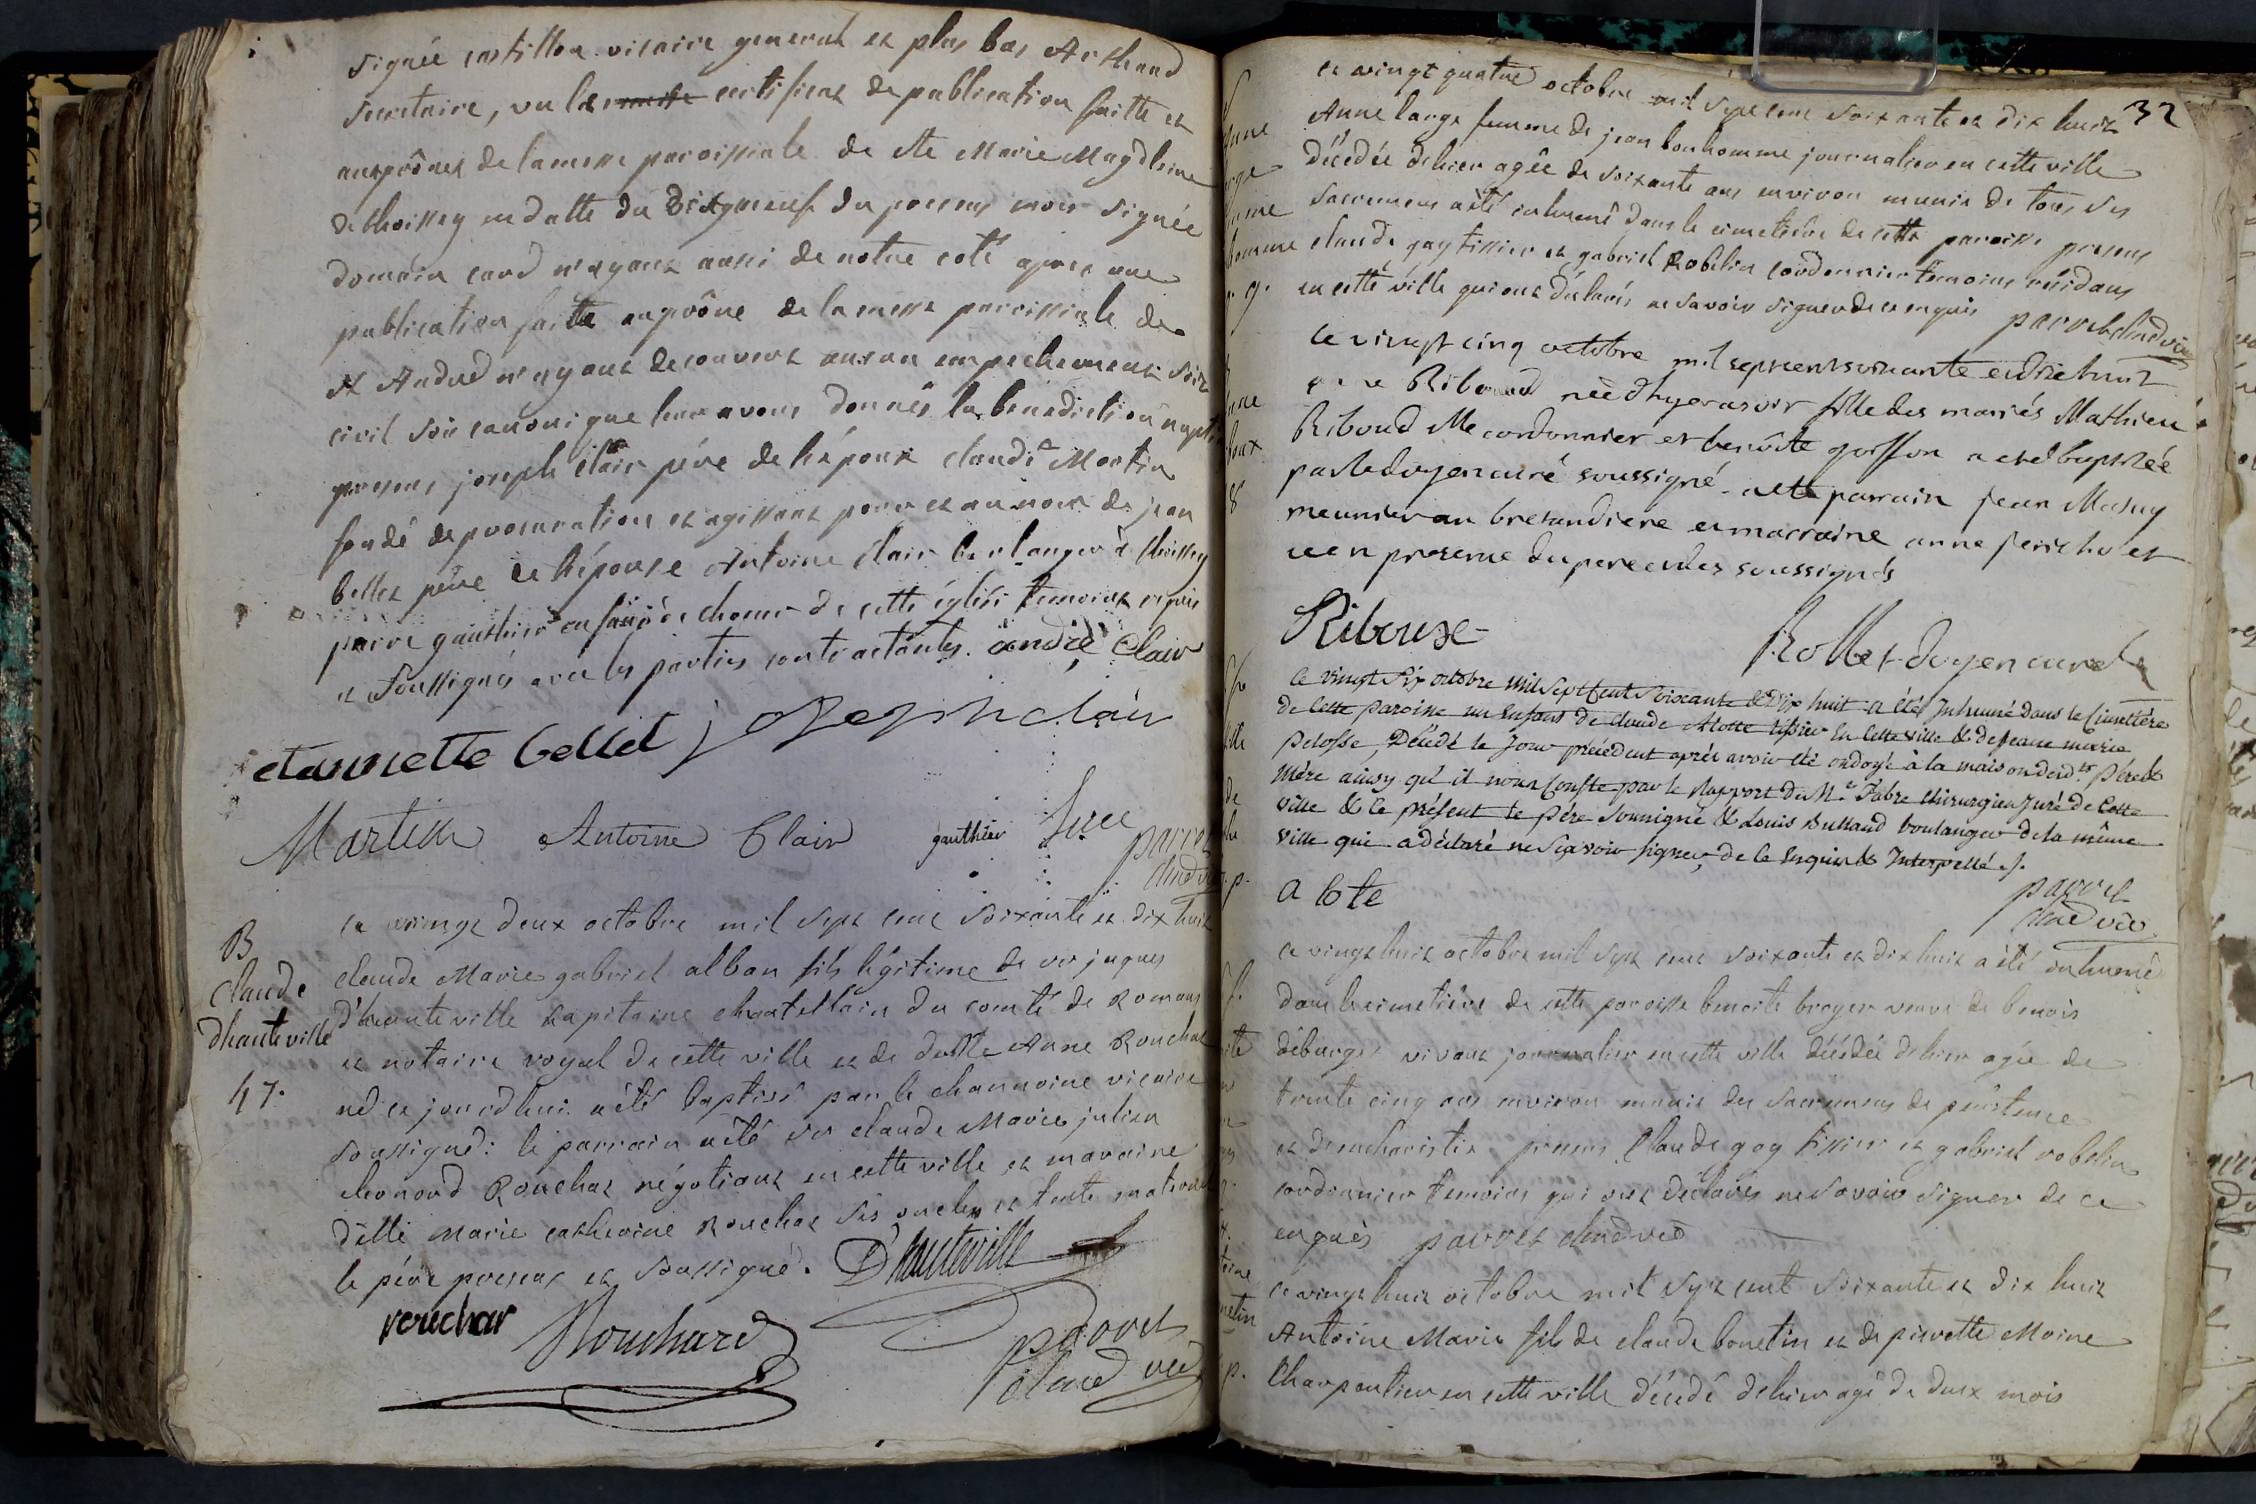 signée castillon vicaire general et plus bas Arthaud
secretaire, vu le certificat de publication faitte
aux prônes de la messe paroissiale de Ste Marie Magdleine
de thoissey en datte du Dixneuf du present mois signée
curé n'ayant aussi de notre coté apres une
publication faitte au prône de la messe paroissiale de
St André n'ayant decouvert aucun empechement soit
civil soit canonique leur avons donnés la benediction nupt
presens joseph clair père de l'époux claude Martin
fondé de procuration et agissant pour et au nom de jean
bellet père de l'épouse Antoine clair boulanger à thoissey
pierre gauthier enfant de choeur de cette église temoins requis
et soussignés avec les parties contractantes. andré Clair
etannette bellet joseph clair
Martin Antoine Clair gauthier
parret
B
Claude
Dhauteville
47.
ce vingt deux octobre mil sept cent soixante et dix huit
claude Marie gabriel alban fils légitime de sr jaques
D'hauteville capitaine chatellain du comté de Romans
et notaire royal de cette ville et de dlle Anne Rouchat
né ce jourdhui a été baptisé par le channoine vicaire
soussigné: le parrain a été sr claude Marie julien
leonord Rouchat négotiant en cette ville et maraine
délle marie catherine Rouchat ses oncle et tante maternel
le père present et soussigné. D'hauteville
rouchar Rouchard
parret
chne vic
32
ce vingt quatre octobre mil sept cent soixante et dix huit
Anne large femme de jean bonhomme journalier en cette ville
décedée dehier agée de soixante ans environ munie de tous ses
sacremens a été inhumé dans le cimetière de cette paroisse presens
claude gay tissier et gabriel Robelin cordonnier temoins résidans
en cette ville qui ont déclarés ne savoir signer de ce enquis parret chne vic
Ce vingt cinq octobre mil sept cent soixante et dix huit
Riboud née d'hyer au soir fille des mariés Mathieu
Riboud Me cordonnier et benoite goiffon a eté baptisée
par le doyen curé soussigné a eté parrain jean
meunier en bresandiere et marraine anne
et en presence du pere et des soussignés
Riboux
Rollet doyen curé
Ce vingt Six octobre mil Sept Cent Soixante & Dix huit a été Inhumé dans le Cimettière
de Cette paroisse un Enfant de claude Alotte tissier En Cette ville & de jeanne marie
pelosse, Décédé le Jour précédent aprés avoir été ondoyé à la maison desd.ts père &
mère ainsy qu'il nous Conste par le Rapport du Mr. Fabre Chirurgien Juré de Cette
ville & Ce présent le père soussigné & Louis Bulland boulanger de la même
ville qui a déclaré ne Sçavoir signer, de Ce Enquis & Interpellé ./.
a lote
parret
chne vic
Ce vingt huit octobre mil sept cent soixante et dix huit a été inhumé
dans le cimetière de cette paroisse benoite broyer veuve de benois
déburges vivant journalier en cette ville décédée dehier agée de
trente cinq ans environ munie des sacremens de pénitence
et deucharistie presens Claude gay tissier et gabriel robelin
cordonnier temoins qui ont déclarés ne savoir signer de ce
enquis parret chne vic
Ce vingt huit octobre mil sept cent soixante et dix huit
Antoine Marie fils de claude bonetin et de pierrette Moine
Charpentier en cette ville décédé dehier agé de deux mois